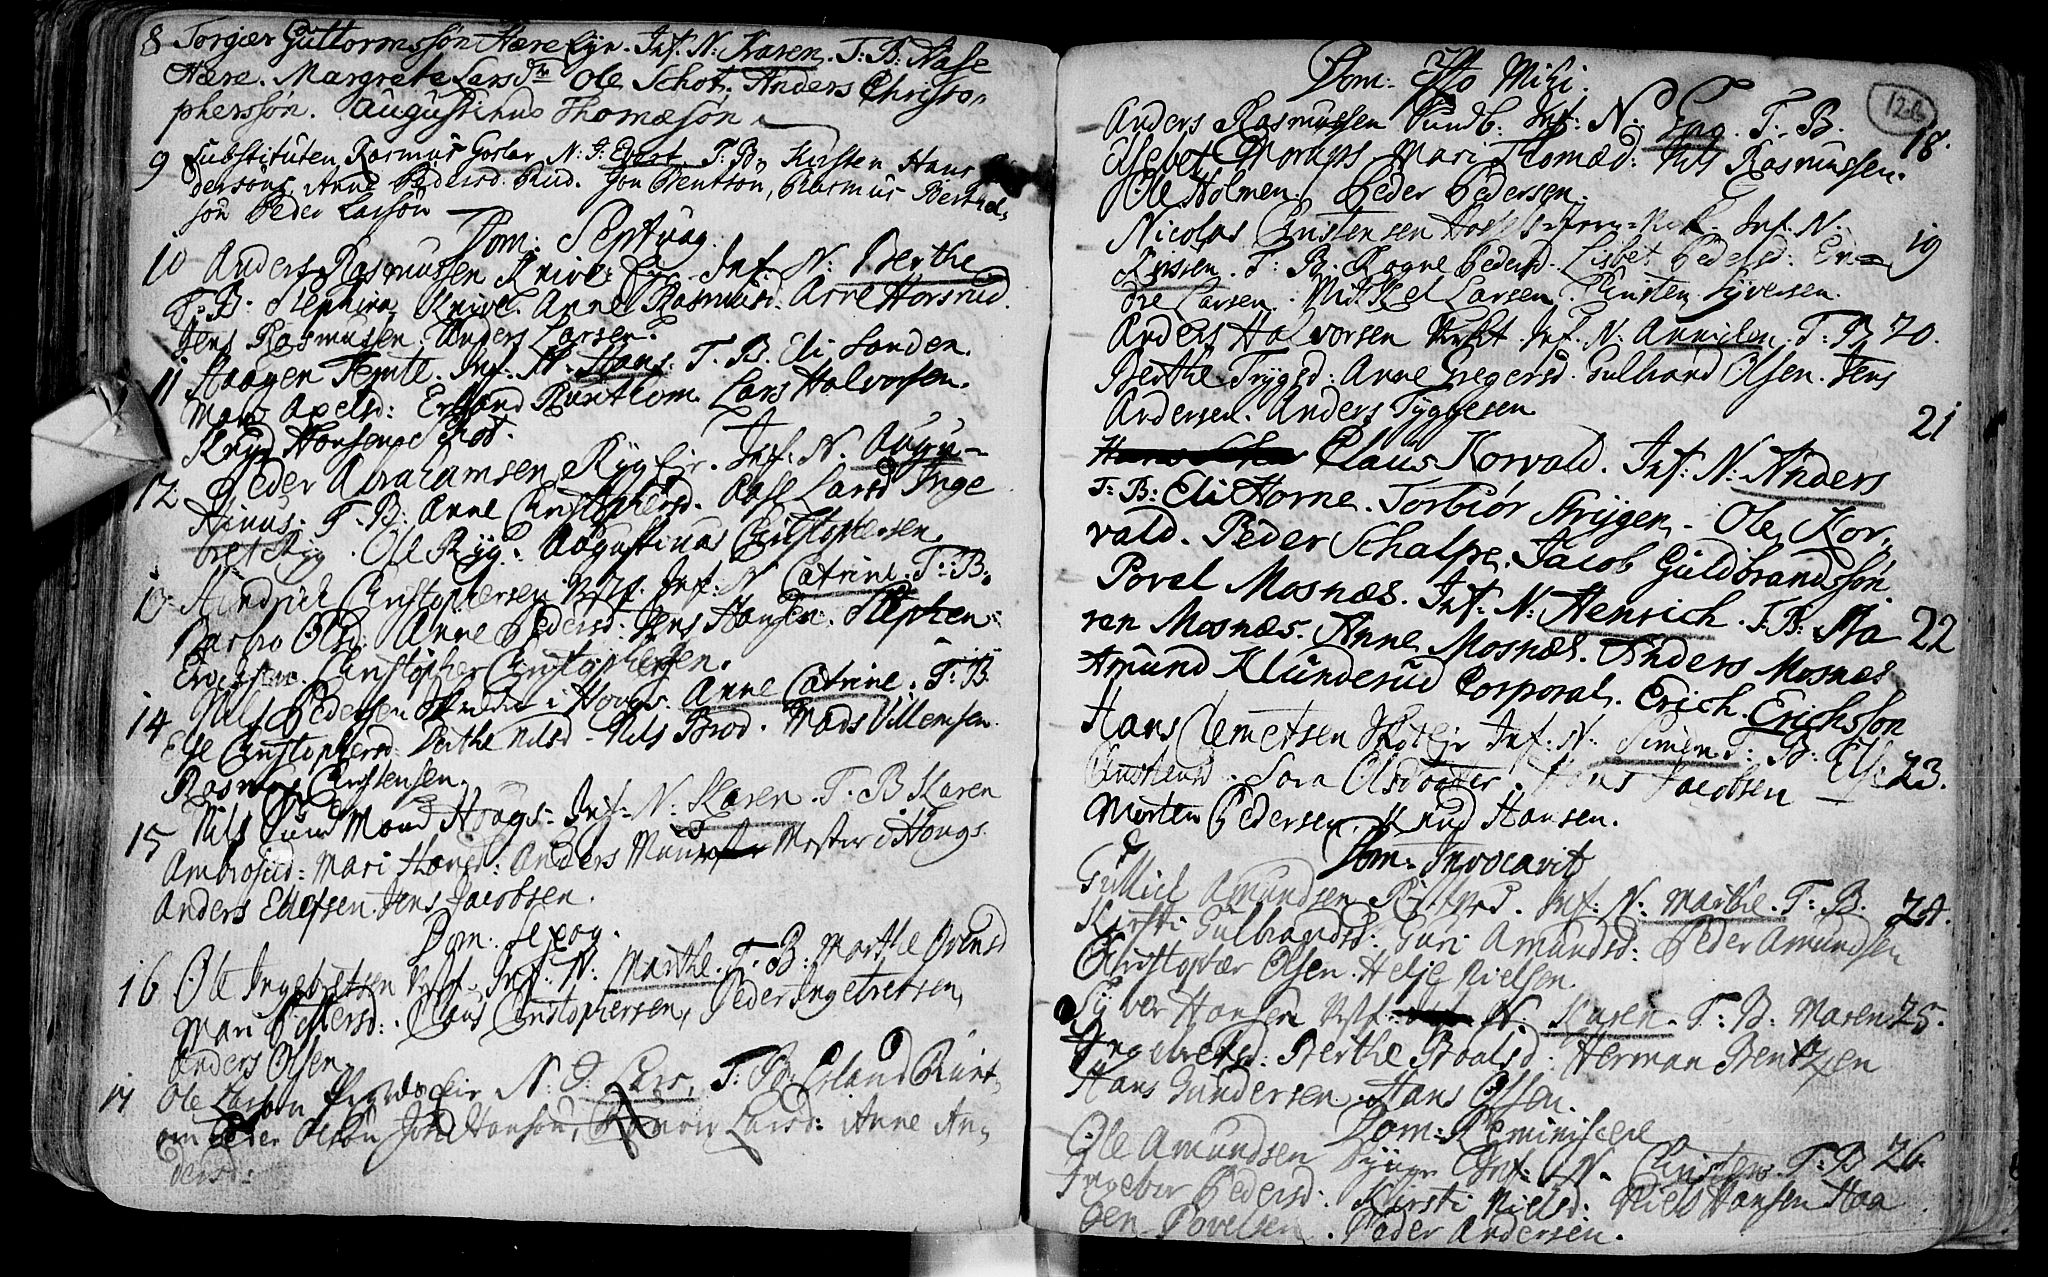 8 Torgier Guttormssøn Hære Eyr. Inf. N: Karen. T: B: Aase
Hære. Margrete Larsd. Ole Schot. Anders Christo-
pherssøn. Augustinus Thomæsøn
9 Substituten Rasmus Goslar N: I: Evart. T: B: Kirsten Hans
dersøns Anne Pedersd: Rud. Jon Bentsøn, Rasmus Berthel-
søn Peder Larsøn
Dom. Septuag.
10 Anders Rasmussen Knive Eyr. Inf. N: Berthe
T: B: Stephina Knive. Anne Rasmusd. Arne Horsrud.
Jens Rasmusen. Anders Larsen.
11 Haagen Temte. Inf. N. Hans. T. B. Eli Sanden.
Mari Axelsd: Erland Runthom. Lars Halvorsen.
Knud Hansen Schot.
12 Peder Abrahamsen Ryg Eyr. Inf. N. Augu-
stinus. T. B: Anne Christophersd. Aase Larsd Inge
bret Ryg. Ole Ryg. Augustinus Christophersen.
13 Hindrich Christophersen Vestf. Inf: N Catrine. T: B.
Barbro Olsd: Anne Pedersd: Jens Hansen. Stephen
Erichsen. Christopher Christophersen.
14 Nils Pedersen i Hougs. Anne Catrine. T: B.
Else Christophersd: Berthe Nilsd - Nils Brod. Mads Villemsen.
Rasmus Christensen.
15 Nils Sundmand Hougs: Inf: N: Karen. T. B Karen
Ambrosd: Mari Hansd: Anders Mester i Hougs.
Anders Ellefsen. Jens Jacobsen.
Dom. Sexag.
16 Ole Ingebretsen Vestf. Inf: N: Marthe. T. B: Marthe Ørensd
Mari Pettersd: Claus Christophersen, Peder Ingebretsen,
Anders Olsen.
17 Ole Larsøn Eir N: I: Lars, T: B: Erland Runt-
om Peder Olsøn Jon Hansøn, Larsd: Anne An-
dersd:
126
Dom. Esto Mihi.
Anders Rasmussen Sundb: Inf: N: Eng. T. B. 18.
Elsebet Moraps Mari Thomæd: Nils Rasmussen.
Ole Holmen. Peder Pedersen.
Nicolas Christensen Inf. N. 19
Nissen. T: B. Rogne Pedersd. Lisbet Pedersd: En-
dre Larsen. Mikkel Larsen. Christen Syversen.
Anders Halvorsen Vestf. Inf. N. Annichen. T: B 20.
Berthe Trygsd: Anne Gregersd. Gulbrand Olsen. Jens
Andersen. Anders Tyggesen
Claus Korvald. Inf: N: Anders 21
T: B: Eli Horne. Torbiør Strygen - Ole Kor-
vald. Peder Schalpe. Jacob Guldbrandssøn.
Povel Mosnæs. Inf: N: Henrich. T: B: Ma 22
ren Mosnæs. Anne Mosnæs. Anders Mosnæs
Amund Klunderud Corporal. Erich Erichsson
Hans Clemetsen Skot Eir Inf: N: Simen T: B: Else 23.
Christensd. Sara Olsdaatter. Hans Jacobsen
Morten Pedersen. Knud Hansen.
Dom. Invocavit
Gullich Amundsen Inf: N: Marthe. T: B. 24.
Kirsti Gulbrandsd: Guri Amundsd: Peder Amundsen
Christopher Olsen. Helje Nielsen.
Syver Hansen Vestf: N. Karen. T: B: Maren 25.
Ingebretsd: Berthe Boalsd: Herman Bentzen
Hans Gundersen. Hans Olsen.
Dom: Reminiscere
Ole Amundsen Inf: N. Christen. T: B 26.
Ingebor Pedersd: Kirsti Nielsd: Niels Hansen Haa
gen Povelsen. Peder Andersen.